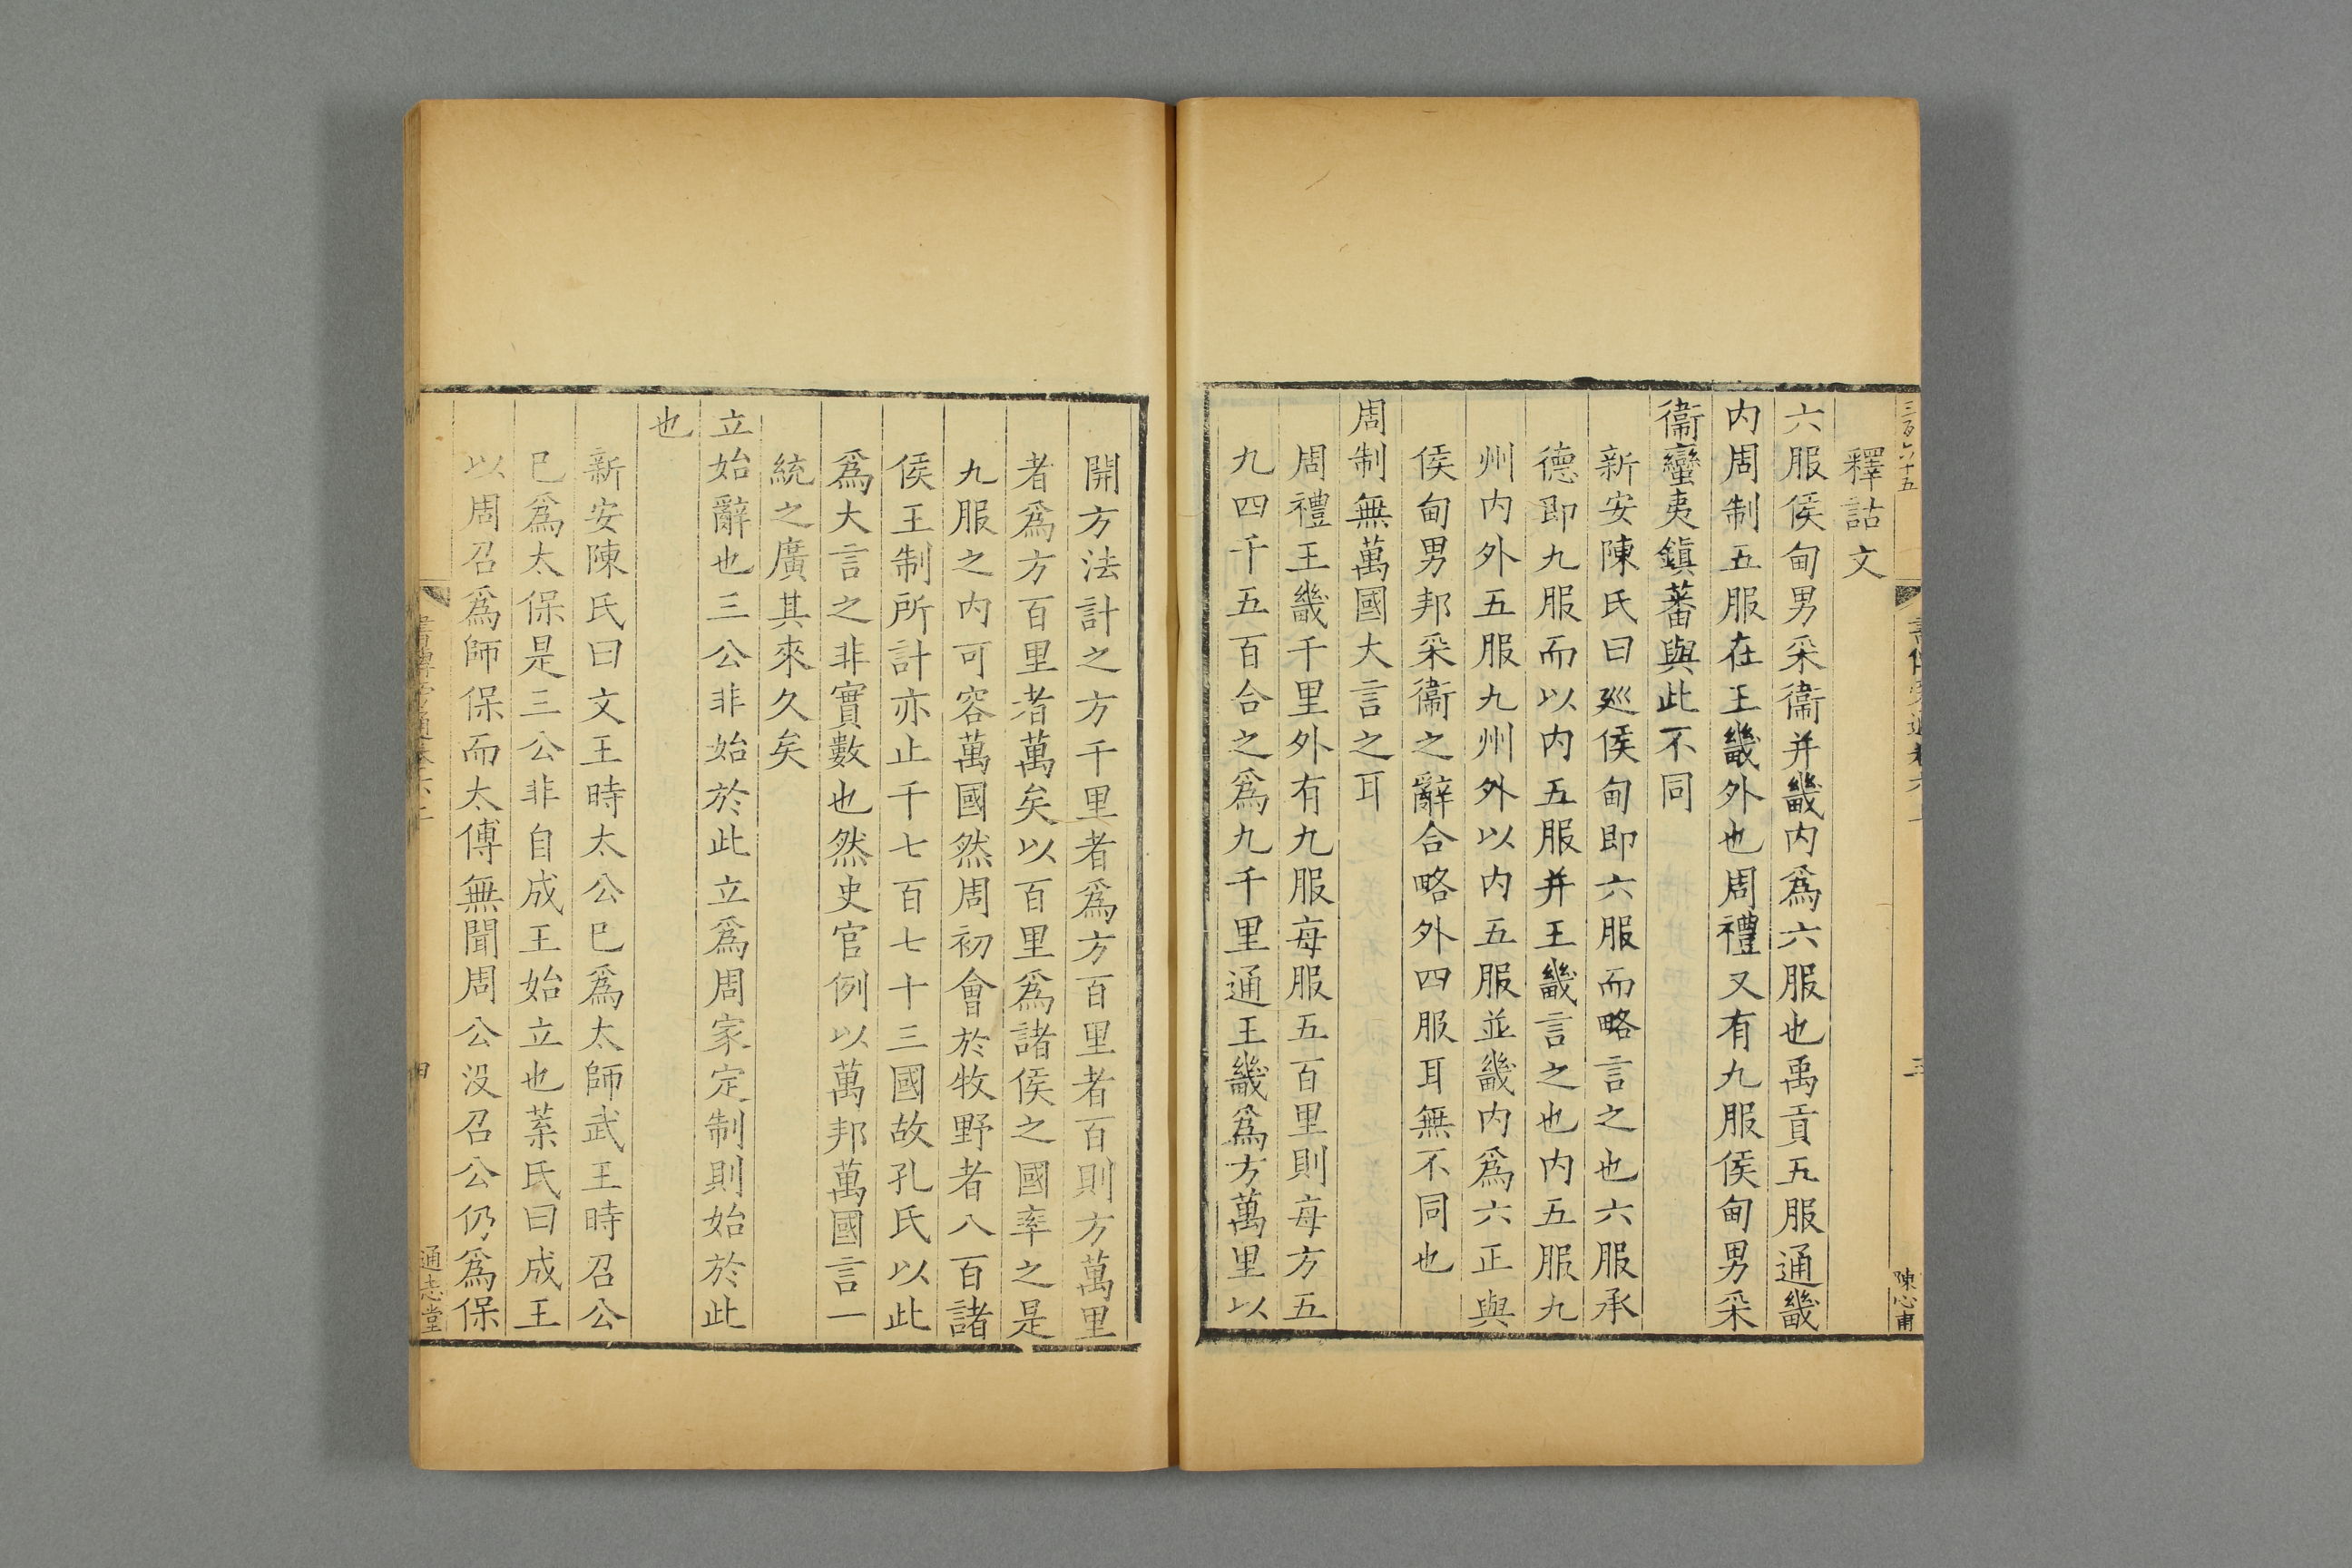 三百六十五
陳心甫
釋詁文
六服侯甸男采衞并畿内爲六服也禹貢五服通畿
内周制五服在王畿外也周禮又有九服侯甸男采
衞蠻夷鎮蕃與此不同
新安陳氏曰廵侯甸即六服而略言之也六服承
德即九服而以内五服并王畿言之也内五服九
州内外五服九州外以内五服並畿内爲六正與
侯甸男邦采衞之辭合略外四服耳無不同也
周制無萬國大言之耳
周禮王畿千里外有九服每服五百里則每方五
九四千五百合之爲九千里通王畿爲方萬里以
開方法計之方千里者爲方百里者百則方萬里
者爲方百里者萬矣以百里爲諸侯之國率之是
九服之内可容萬國然周初會於牧野者八百諸
侯王制所計亦止千七百七十三國故孔氏以此
爲大言之非實數也然史官例以萬邦萬國言一
統之廣其來久矣
立始辭也三公非始於此立爲周家定制則始於此
也
新安陳氏曰文王時太公巳爲太師武王時召公
巳爲太保是三公非自成王始立也葉氏曰成王
以周召爲師保而太傅無聞周公没召公仍爲保
通志堂